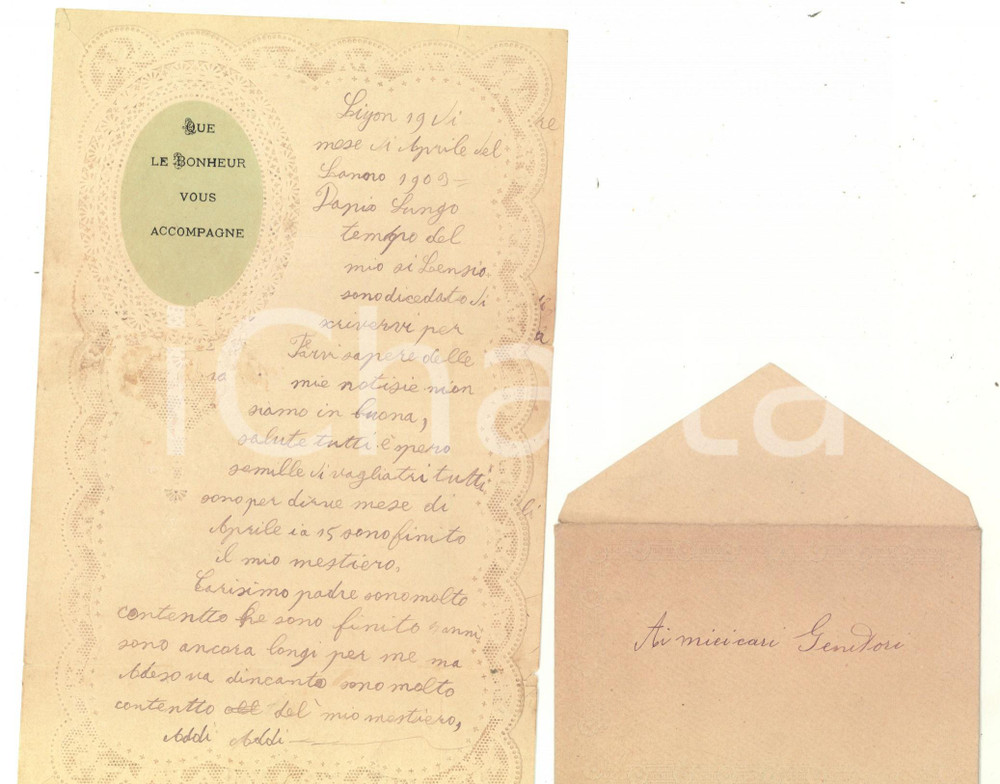 QUE
LE BONHEUR
VOUS
ACCOMPAGNE
Liyon 19 di
mese di Aprile del
Lanno 1909=
Dapio Lungo
tempo del
mio si Lensio
sono dicedato di
scrivervi per
Farvi sapere delle
mie notisie nion
siamo in buona,
salute tutti è spero
semille di vagliatri tutti
sono per dirve mese di
Aprile ia 15 sono finito
il mio mestiero,
Carisimo padre sono molto
contentto he sono finito anni
sono ancora longi per me ma
Adeso va dincanto sono molto
contentto del mio mestiero,
Addi Addi
Ai mieicari Genitori
iCharta